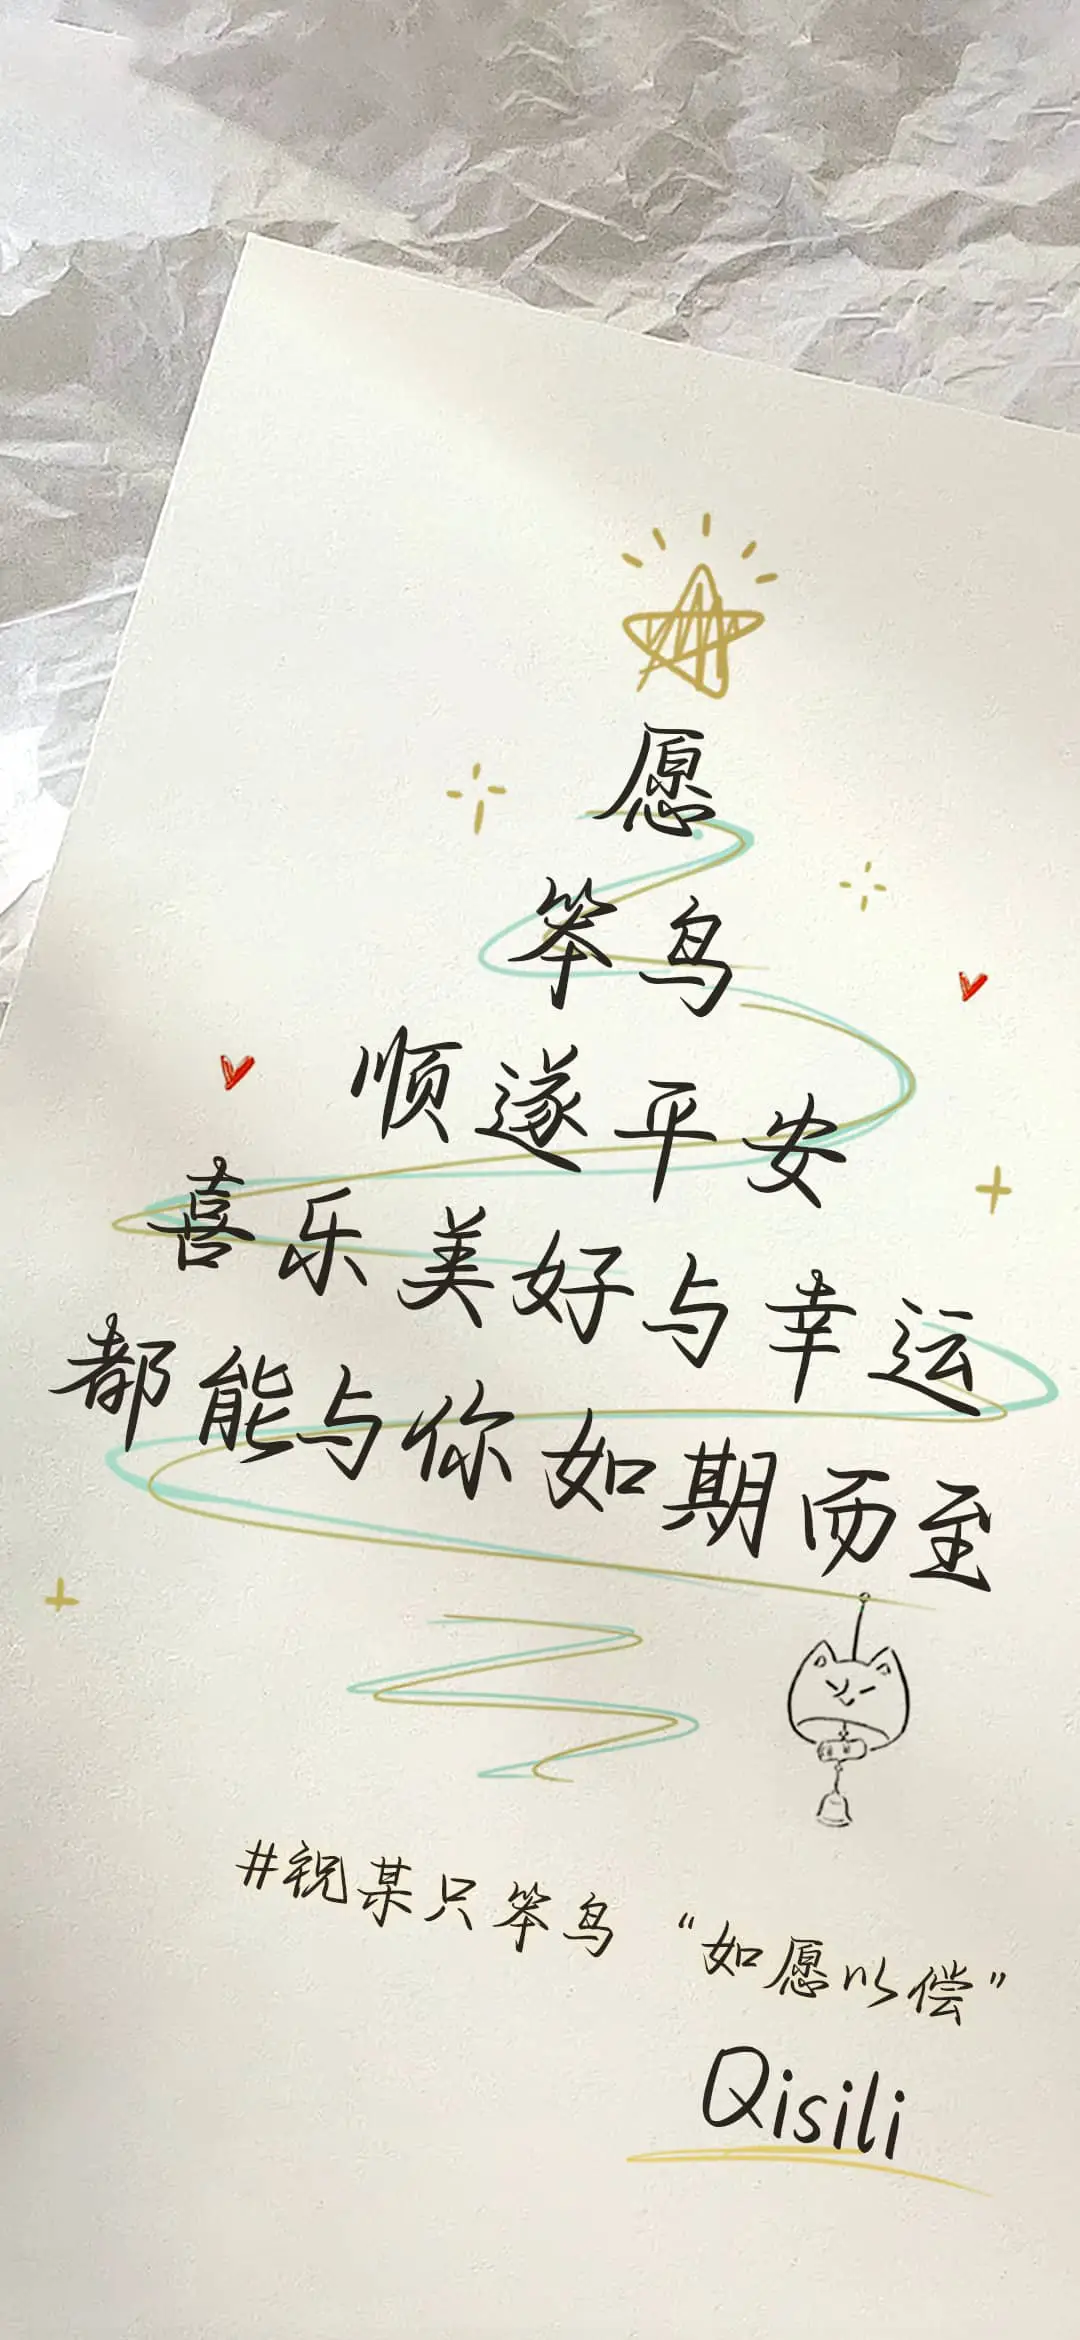 愿
笨鸟
顺遂平安
喜乐美好与幸运
都能与你如期而至
#祝某只笨鸟 “如愿以偿”
Qisili